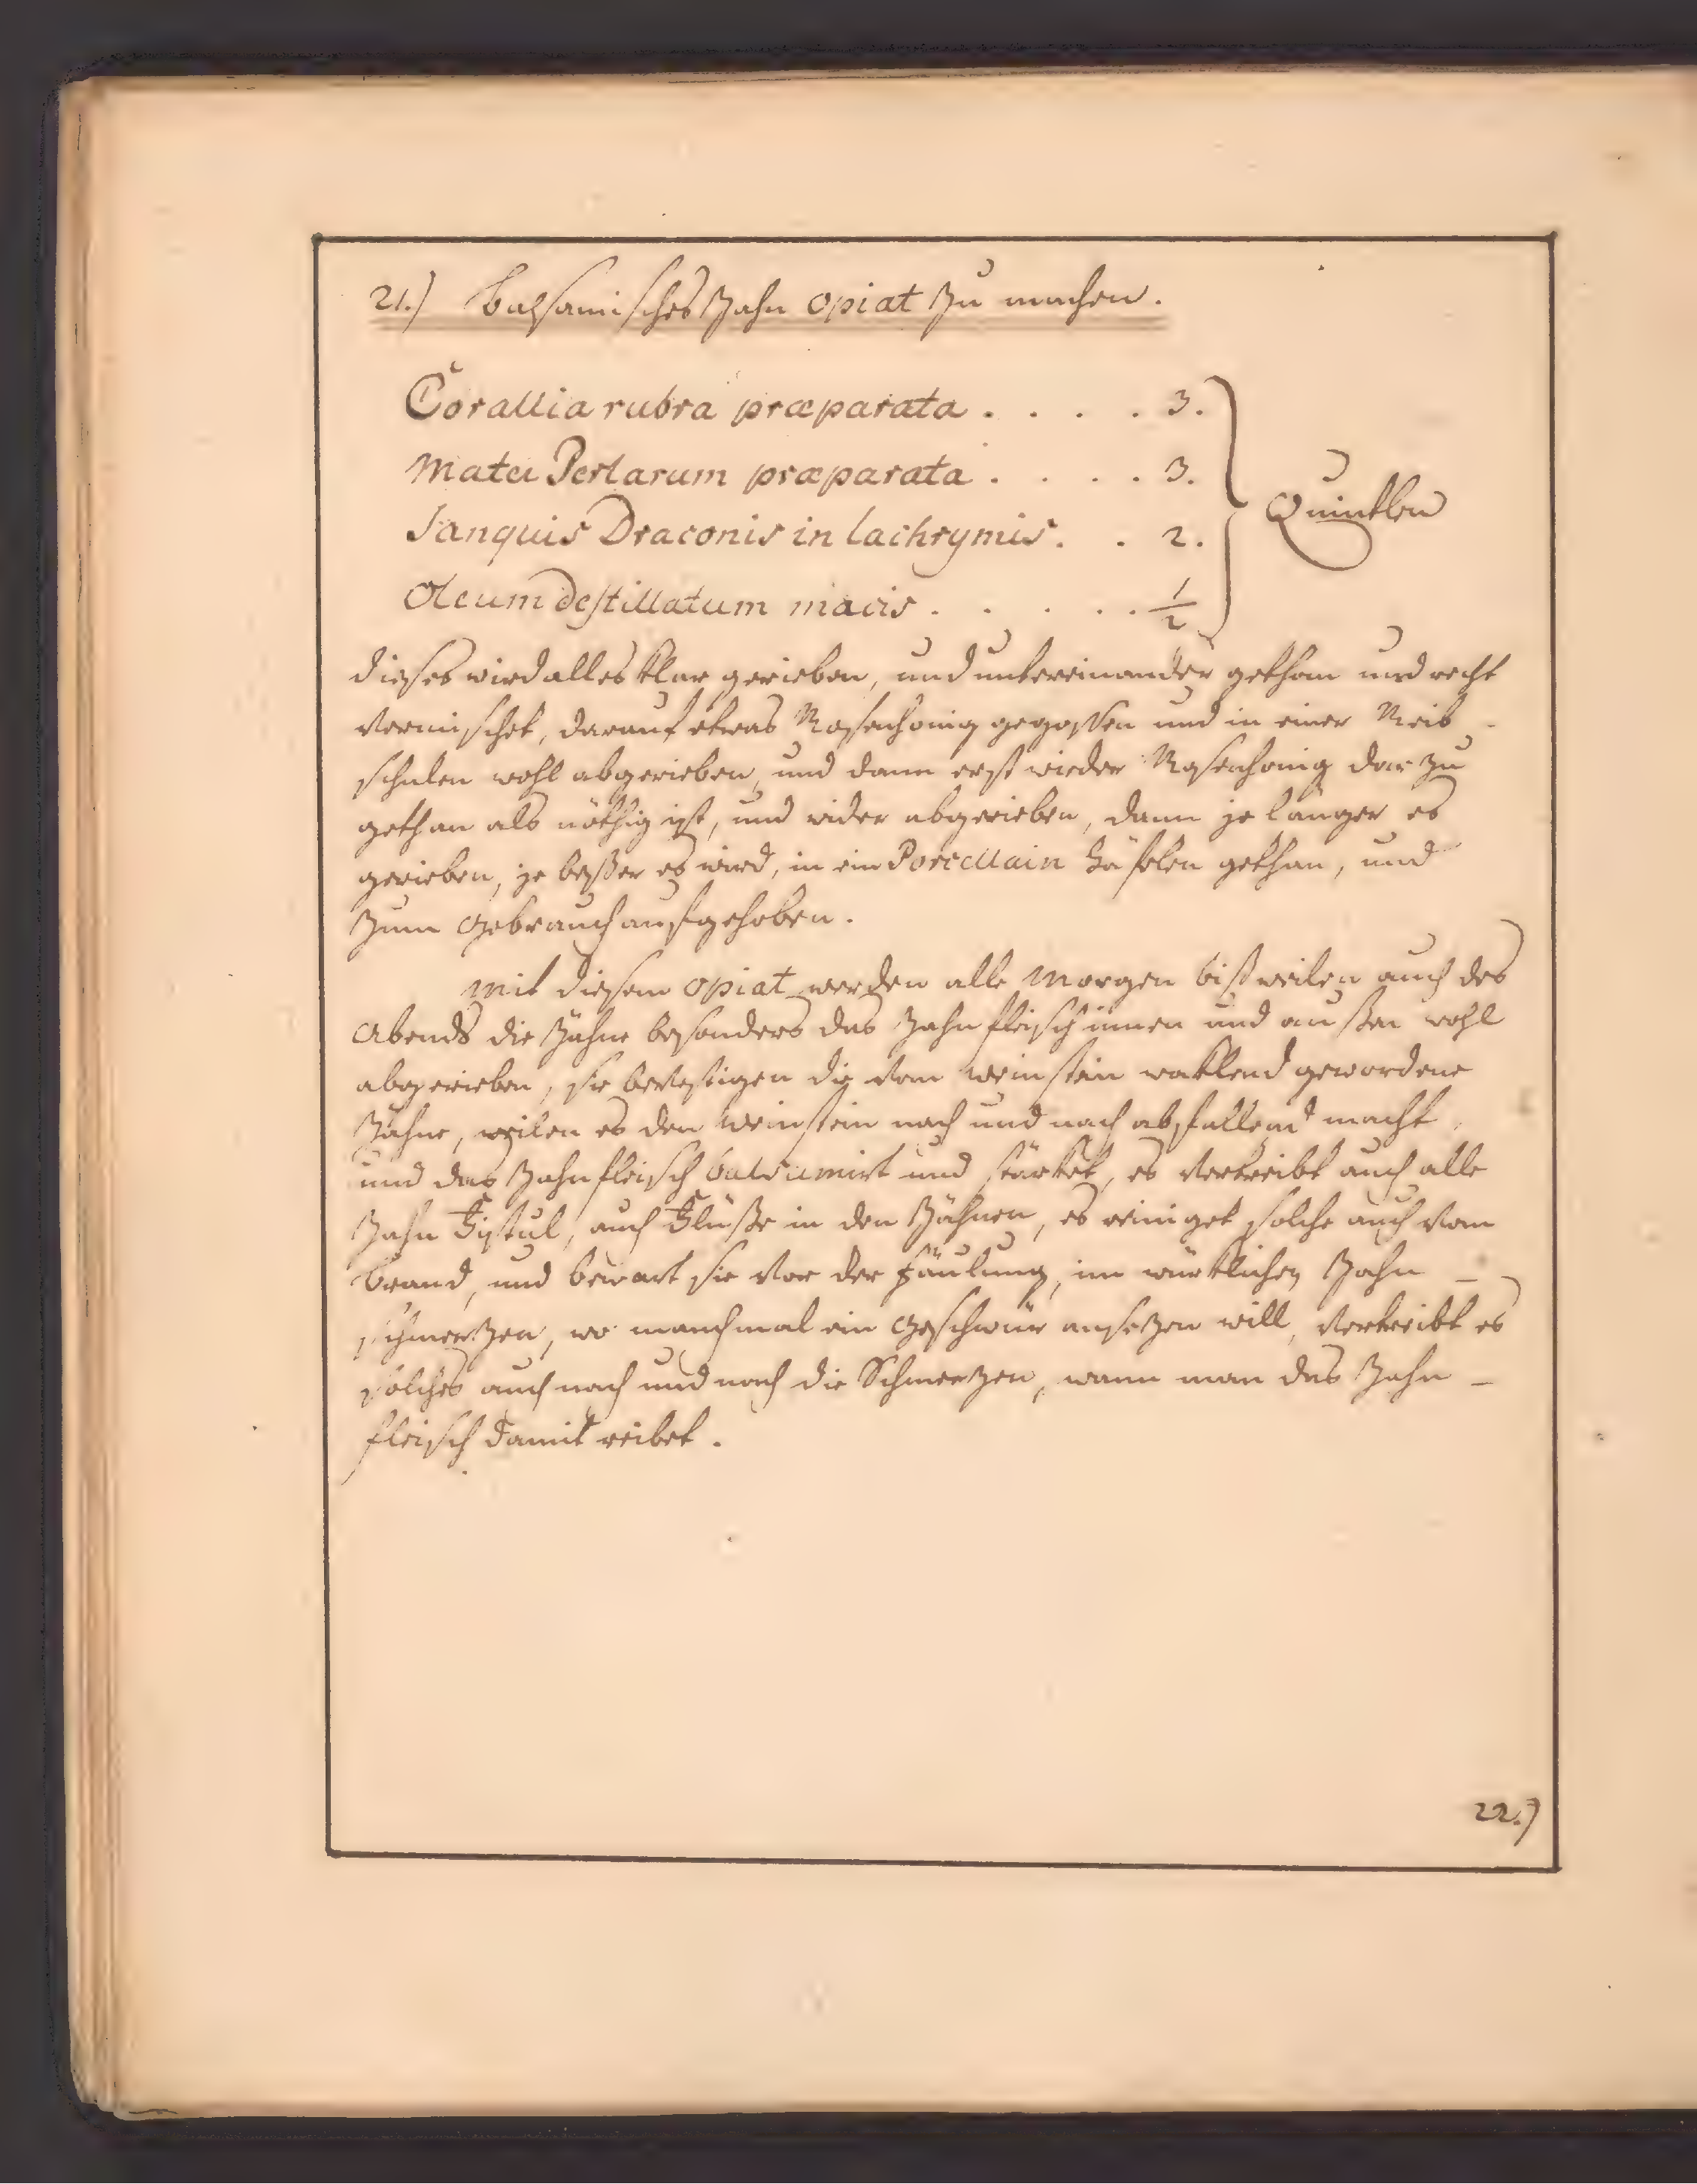 21.) Balsamisches Zahn Opiat zu machen.
Corallia rubra præparata . . . . 3.
Mater Perlarum præparata . . . . 3.
Sanquis Draconis in lachrymis . . 2.
Oleum destillatum macis . . . . . 1/2
Quintlen
dieses wird alles klar gerieben, und untereinander gethan und recht
vermischet, darauf etwas Rosenhonig gegossen und in einer Reib-
schalen wohl abgerieben, und dann erst wieder Rosenhonig darzu
gethan als nöthig ist, und wider abgerieben, dann je länger es
gerieben, je beßer es wird, in ein Porcellain Häfelen gethan, und
zum Gebrauch aufgehoben.
Mit diesem Opiat werden alle Morgen bißweilen auch des
Abends die Zähne besonders das Zahnfleisch innen und außen wohl
abgerieben, sie bevestigen die vom Weinstein waklend gewordene
Zähne, weilen es den Weinstein nach und nach abfallend macht,
und das Zahnfleisch balsamirt und stärket, es vertreibt auch alle
Zahn Fistul, auch Flüße in den Zähnen, es reiniget solche auch vom
Brand, und bewart sie vor der Fäulung, im würklichen Zahn-
schmertzen, wo manchmal ein Geschwür ansetzen will, vertreibt es
solches auch nach und nach die Schmertzen, wann man das Zahn-
fleisch damit reibet.
22.)